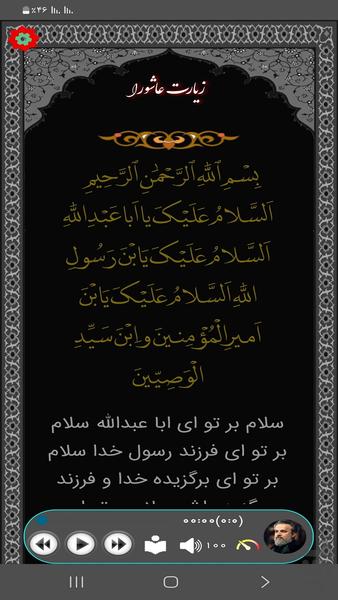 ٪۴۶
زیارت عاشورا
بِسْمِ اللهِ الرَّحْمٰنِ الرَّحِیمِ
اَلسَّلامُ عَلَیْکَ یا اَبا عَبْدِاللهِ
اَلسَّلامُ عَلَیْکَ یَابْنَ رَسُولِ
اللهِ اَلسَّلامُ عَلَیْکَ یَابْنَ
اَمیرِالْمُؤْمِنینَ وَابْنَ سَیِّدِ
الْوَصِیّینَ
سلام بر تو ای ابا عبدالله سلام
بر تو ای فرزند رسول خدا سلام
بر تو ای برگزیده خدا و فرزند
00:00(0:0)
100